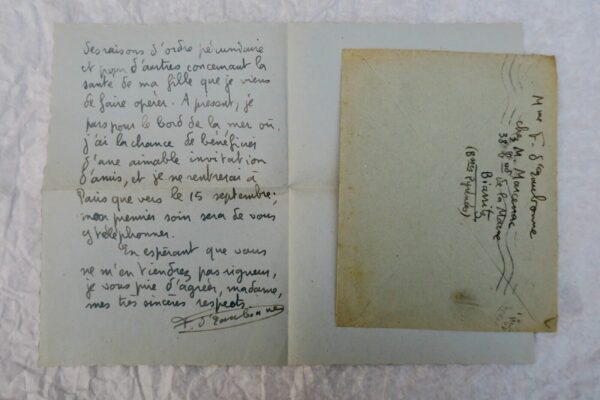 des raisons d'ordre pécuniaire
et pour d'autres concernant la
santé de ma fille que je viens
de faire opérer. A présent, je
pars pour le bord de la mer où
j'ai la chance de bénéficier
d'une aimable invitation
d'amis, et je ne rentrerai à
Paris que vers le 15 septembre;
mon premier soin sera de vous
y téléphoner.
En espérant que vous
ne m'en tiendrez pas rigueur,
je vous prie d'agréer, madame,
mes très sincères respects.
F. d'Eaubonne
Mme F. d'Eaubonne
chez M. Marcenac
38 de la Marne
Biarritz
(Bses Pyrénées)